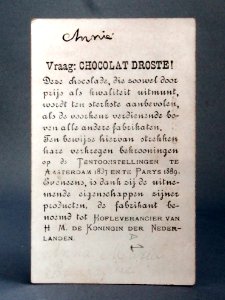 Annie
Vraag: CHOCOLAT DROSTE!
Deze chocolade, die zoowel door
prijs als kwaliteit uitmunt,
wordt ten sterkste aanbevolen,
als de voorkeur verdienende bo-
ven alle andere fabrikaten.
Ten bewijze hiervan strekken
hare verkregen bekroningen
op de TENTOONSTELLINGEN TE
AMSTERDAM 1887 EN TE PARYS 1889.
Eveneens, is dank zij de uitne-
mende eigenschappen zijner
producten, de fabrikant be-
noemd tot HOFLEVERANCIER VAN
H. M. DE KONINGIN DER NEDER-
LANDEN.